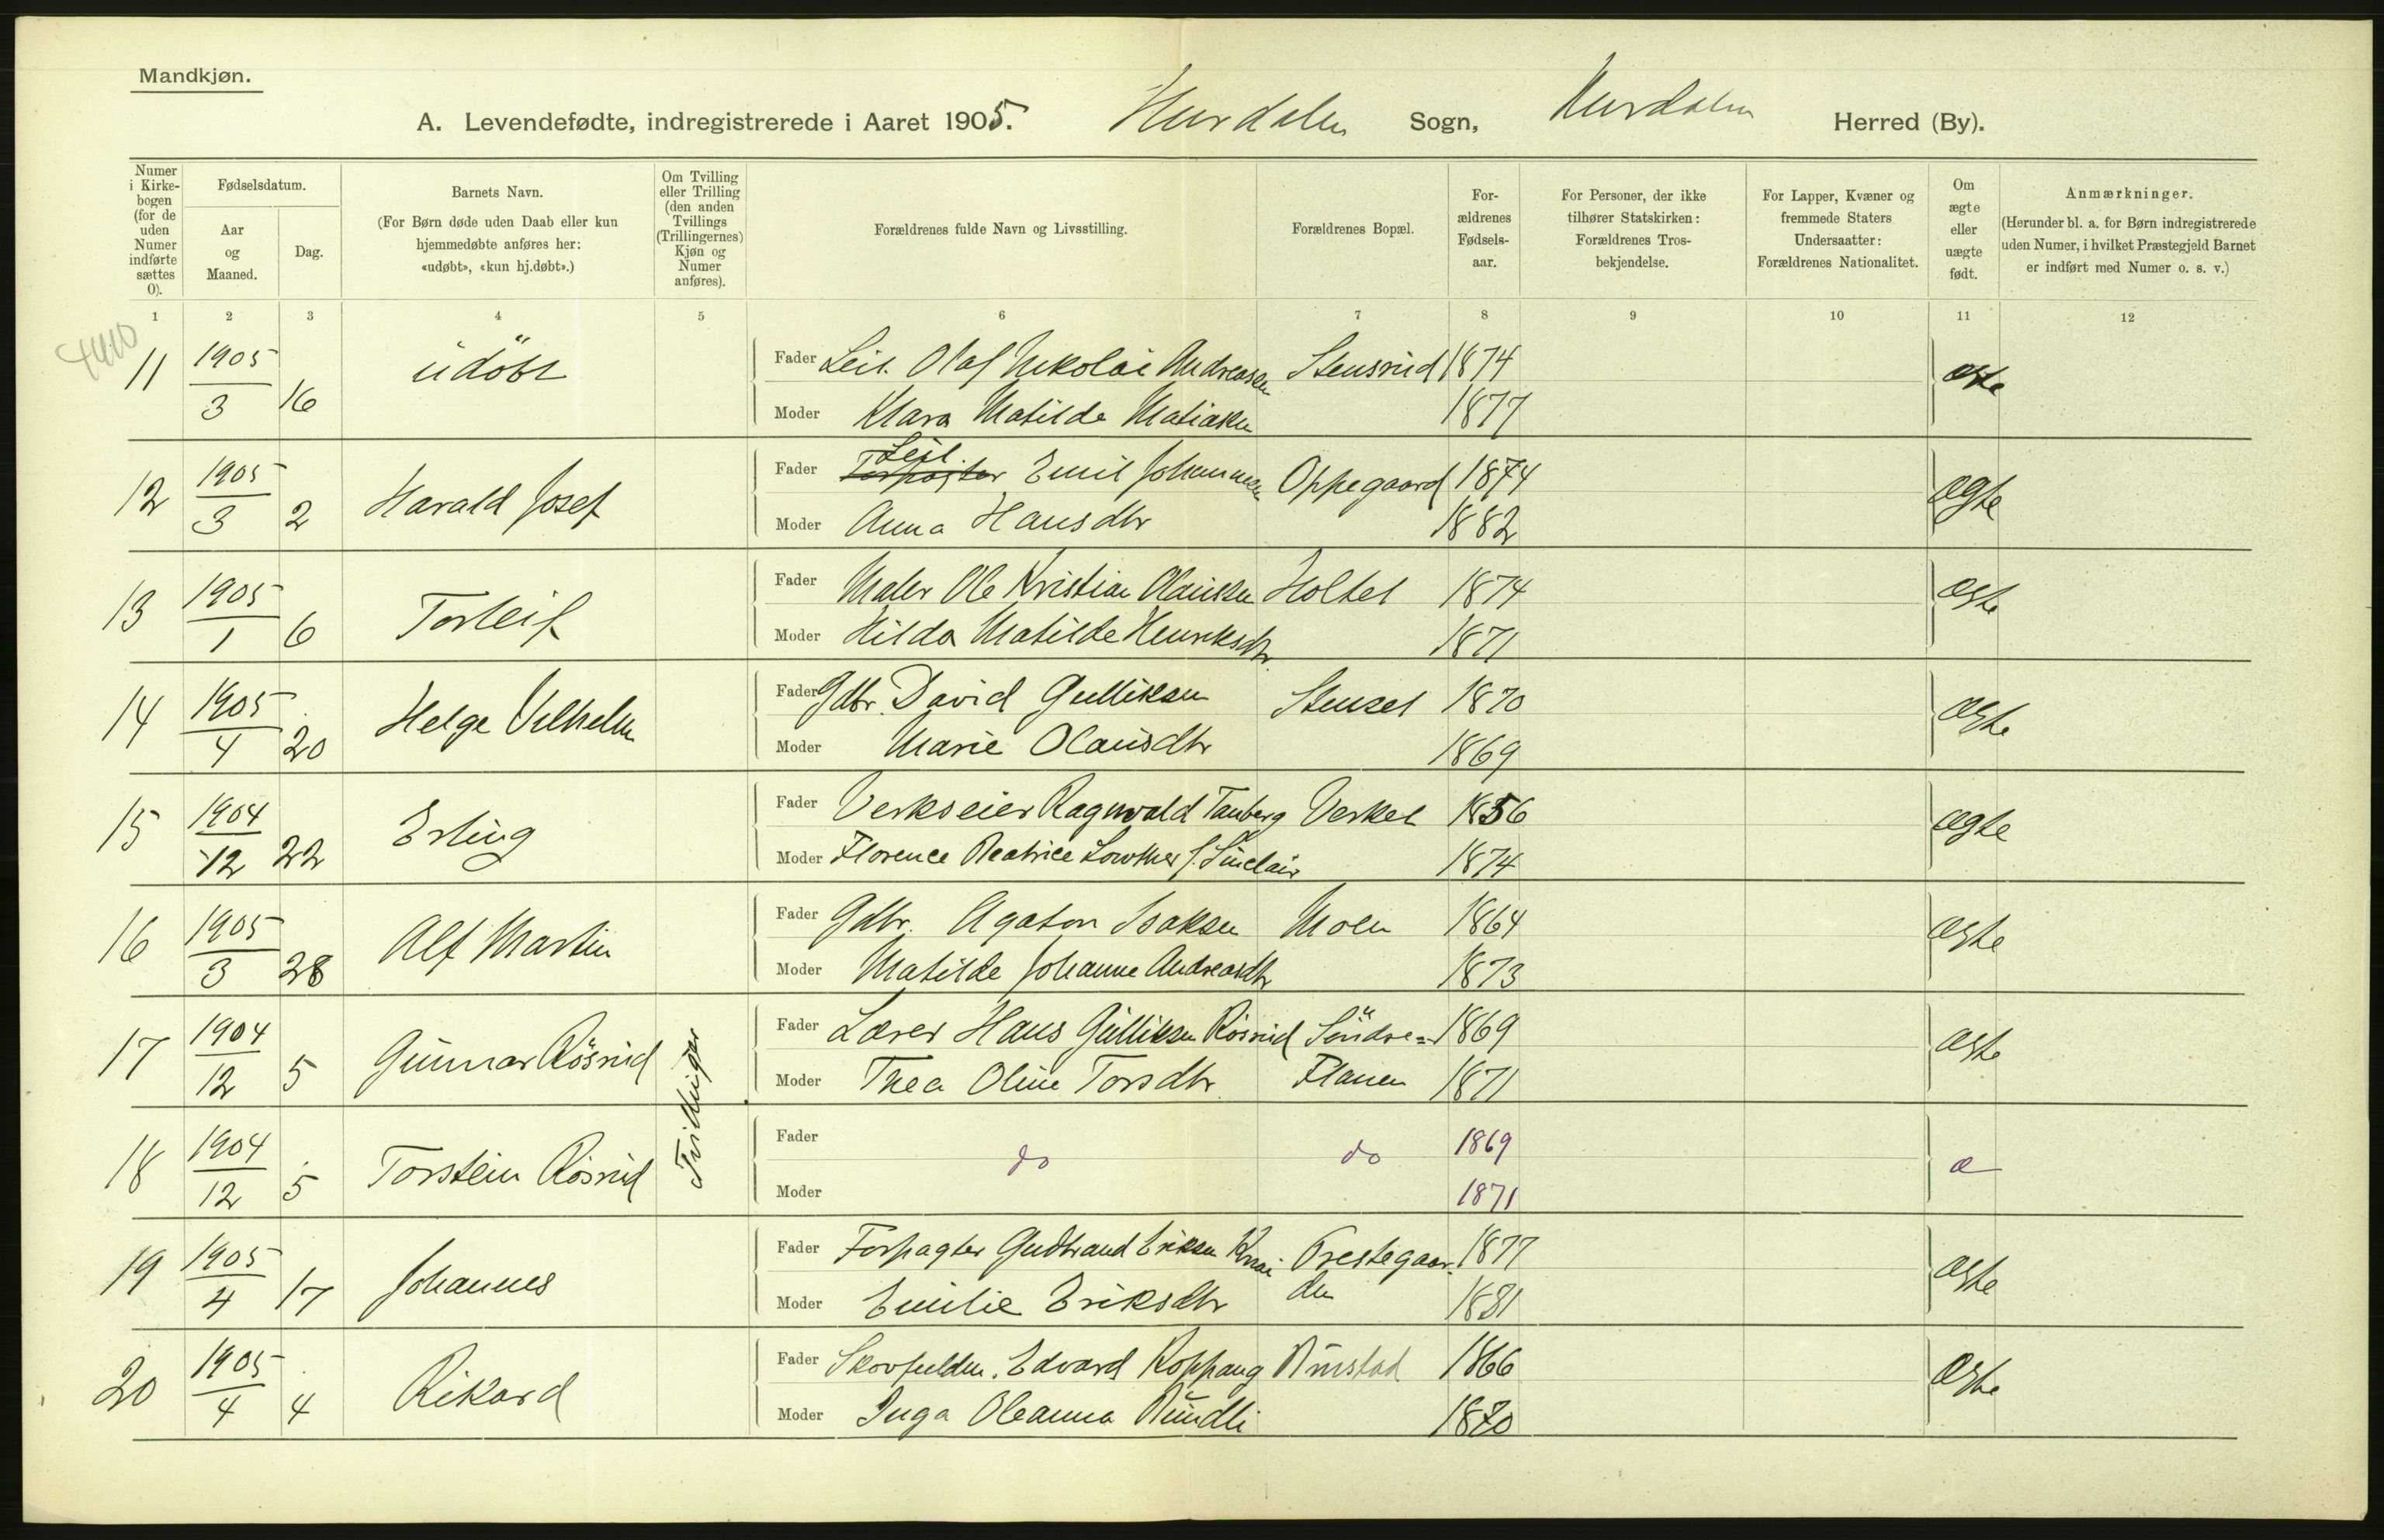 Mandkjøn.
A. Levendefødte, indregistrerede i Aaret 1905. Hurdalen Sogn, Hurdalen Herred (By).
Numer i Kirkebogen (for de uden Numer indførte sættes 0).
Fødselsdatum.
Aar og Maaned.
Dag.
Barnets Navn.
(For Børn døde uden Daab eller kun hjemmedøbte anføres her: «udøbt», «kun hj.døbt».)
Om Tvilling eller Trilling (den anden Tvillings (Trillingernes) Kjøn og Numer anføres).
Forældrenes fulde Navn og Livsstilling.
Forældrenes Bopæl.
For-ældrenes Fødsels-aar.
For Personer, der ikke tilhører Statskirken: Forældrenes Tros-bekjendelse.
For Lapper, Kvæner og fremmede Staters Undersaatter: Forældrenes Nationalitet.
Om ægte eller uægte født.
Anmærkninger.
(Herunder bl. a. for Børn indregistrerede uden Numer, i hvilket Præstegjeld Barnet er indført med Numer o. s. v.)
1 2 3 4 5 6 7 8 9 10 11 12
11 1905/3 16 udöbt Fader Leil. Olaf Nikolai Andreasen Stensrud 1874 ægte
Moder Klara Matilde Matiasen 1877
12 1905/3 2 Harald Josef Fader Forpagter Leil. Emil Johannesen Oppegaard 1874 ægte
Moder Anna Hansdtr 1882
13 1905/1 6 Torleif Fader Maler Ole Kristian Olausen Holtet 1874 ægte
Moder Hilda Matilde Henriksdtr. 1871
14 1905/4 20 Helge Vilhelm Fader Gdbr. David Gulliksen Stenset 1870 ægte
Moder Marie Olausdtr 1869
15 1904/12 22 Erling Fader Verkseier Ragnvald Tanberg Verket 1856 ægte
Moder Florence Beatrice Lowther f. Sinclair 1874
16 1905/3 28 Alf Martin Fader Gdbr. Agaton Isaksen Moen 1864 ægte
Moder Matilde Johanne Andreasdtr 1873
17 1904/12 5 Gunnar Rösrud Tvillinger Fader Lærer Hans Gulliksen Rösrud Söndre= 1869 ægte
Moder Thea Oline Torsdtr. Flauen 1871
18 1904/12 5 Torstein Rösrud Fader do do 1869 æ
Moder 1871
19 1905/4 17 Johannes Fader Forpagter Gudbrand Eriksen Knai Prestegaar- 1877 ægte
Moder Emilie Eriksdtr den 1881
20 1905/4 4 Rikard Fader Edvard Koppang Rustad 1866 ægte
Moder Inga Oleanna Rundli 1870